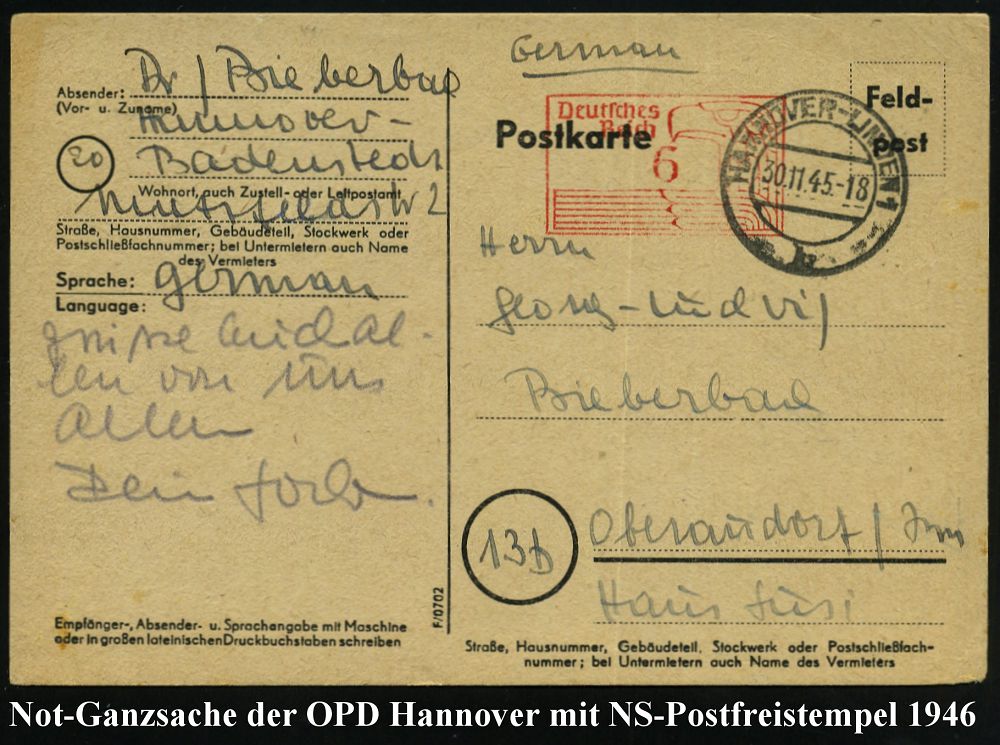 Absender: Dr / Bieberbac
(Vor- u. Zuname)
Hannover-
20
Badenstedt
Wohnort, auch Zustell- oder Leitpostamt
Straße, Hausnummer, Gebäudeteil, Stockwerk oder
Postschließfachnummer; bei Untermietern auch Name
des Vermieters
Sprache: German
Language:
von uns
Allen
Dein
Empfänger-, Absender- u. Sprachangabe mit Maschine
oder in großen lateinischen Druckbuchstaben schreiben
F/0702
German
Deutsches
Reich
6
Postkarte
Feld-
post
HANNOVER-LINDEN 1
30.11.45.-18
Herrn
Georg-Ludwig
Bieberbac
13b
Oberaudorf / Inn
Haus Susi
Straße, Hausnummer, Gebäudeteil, Stockwerk oder Postschließfach-
nummer; bei Untermietern auch Name des Vermieters
Not-Ganzsache der OPD Hannover mit NS-Postfreistempel 1946